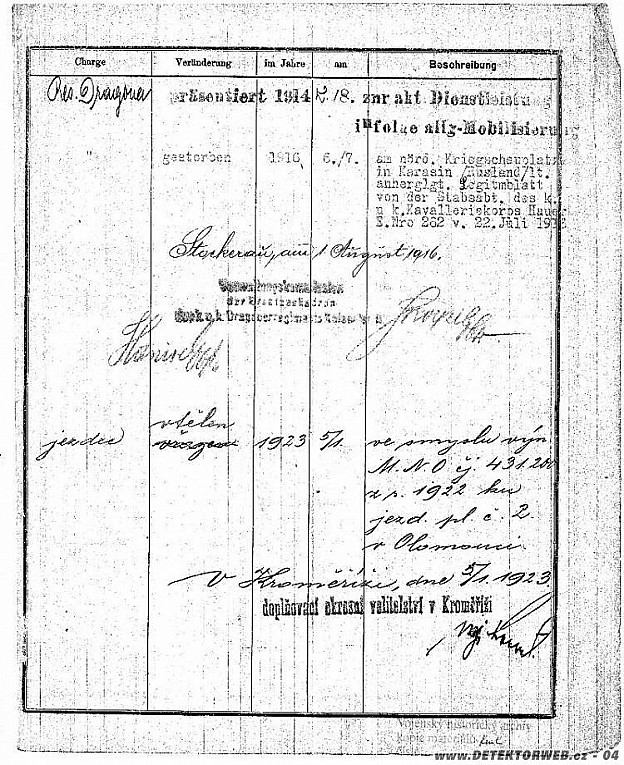 Charge Veränderung im Jahre am Beschreibung
Res. Dragoner präsentiert 1914 2./8. znr akt Dienstleistung
infolge allg-Mobilisierung
" gestorben 1916 6./7. am nörd. Kriegsschauplatz
in Karasin /Rusland/lt.
anherglgt. Legitmblatt
von der Stabsabt. des k.
u k.Kavalleriekorps Hauer
E.Nro 262 v. 22.Juli 1916
Stockerau, am 1 August 1916.
der Ersatzeskadron
des k.u.k. Dragonerregiments Kaiser
vtělen
jezdec 1923 5/1. ve smyslu výn
M.N.O čj. 431.200
z r. 1922 ku
jezd. pl. č. 2.
v Olomouci.
V Kroměříži, dne 5/1. 1923
doplňovací okresní velitelství v Kroměříži
Vojenský historický archiv
kopie materiálu
www.DETEKTORWEB.cz - 04